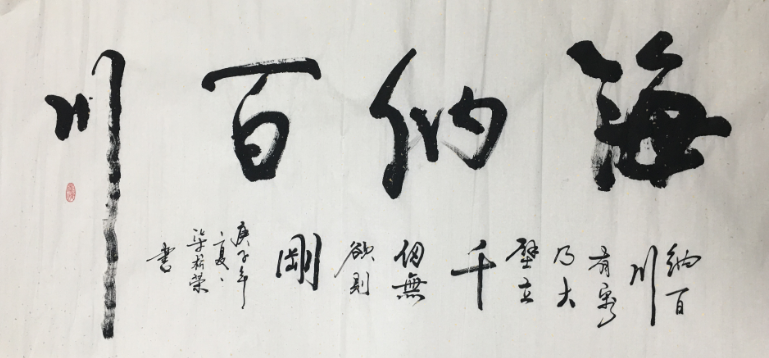 海納百川
納百
川
有容
乃大
壁立
千
仞無
欲則
剛
庚子年
夏
書